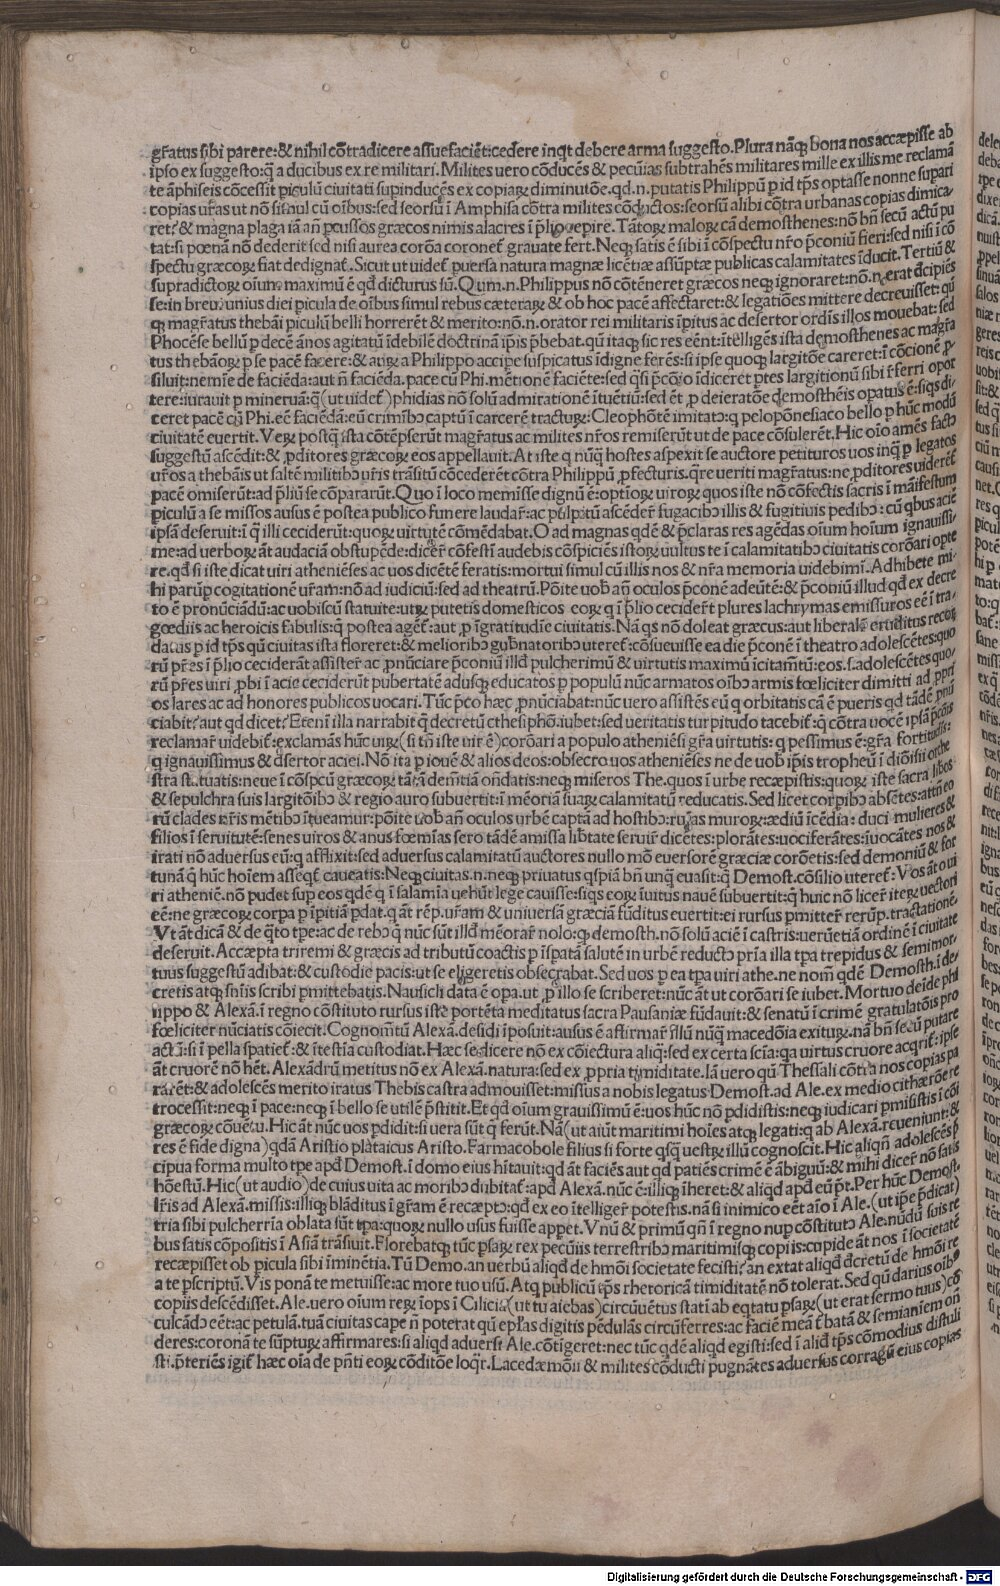 gr̄atus sibi parere:& nihil cōtradicere assuefaciēt:cedere inqt debere arma suggesto.Plura nāqȝ bona nos accæpisse ab
ipso ex suggesto:q̄ a ducibus ex re militari.Milites uero cōducēs & pecūias subtrahēs militares mille ex illis me reclamā
te āphiseis cōcessit piculū ciuitati supinducēs ex copiaꝝ diminutōe.qd.n.putatis Philippū p id tp̄s optasse nonne supari
copias ur̄as ut nō simul cū oībus:sed seorsū ī Amphisa cōtra milites cōductos:seorsū alibi cōtra urbanas copias dimica
ret?& magna plaga iā an̄ pcussos græcos nimis alacres ī p̄lio Tātoꝝ maloꝝ cā demosthenes:nō bn̄ secū actū pu
tat:si pœnā nō dederit sed nisi aurea corōa coronet̄ grauate fert.Neqȝ satis ē sibi ī cōspectu nr̄o p̄coniū fieri:sed nisi ī cō
spectu græcoꝝ fiat dedignat̄.Sicut ut uidet̄ puersa natura magnæ licētiæ assūptæ publicas calamitates īducit.Tertiū &
supradictoꝝ oīum maximū ē qd̄ dicturus sū.Qum.n.Philippus nō cōtēneret græcos neqȝ ignoraret:nō.n.erat dcipiēs
se:in breui unius diei picula de oībus simul rebus cæteraꝝ & ob hoc pacē affectaret:& legatiōes mittere decreuisset:qū
qȝ magr̄atus thebāi piculū belli horrerēt & merito:nō.n.orator rei militaris īpitus ac desertor ordīs illos mouebat:sed
Phocēse bellū p decē ānos agitatū īdebilē doctrinā ip̄is p̄bebat.qū itaqȝ sic res eēnt:ītelligēs ista demosthenes ac magr̄a
tus thebāoꝝ p se pacē facere:& auꝝ a Philippo accipe suspicatus īdigne ferēs:si ipse quoqȝ largitōe careret:ī cōcione p
siluit:nemīe de faciēda:aut n̄ faciēda.pace cū Phi.mētionē faciēte:sed q̄si p̄cōio īdiceret p̄tes largitionū sibi r̄ferri opor
tere:iurauit p mineruā:q̄(ut uidet̄)phidias nō solū admirationē ītuētiū:sed ēt p deieratōe demosthēis opatus ē:siqs di
ceret pacē cū Phi.eē faciēdā:eū crimībꝰ captū ī carcerē tractuꝝ:Cleophōtē imitatꝰ:q peloponesiaco bello p hūc modū
ciuitatē euertit.Veꝝ postq̄ ista cōtēpserūt magr̄atus ac milites nr̄os remiserūt ut de pace cōsulerēt.Hic oīo amēs factꝰ
suggestū ascēdit:& pditores græcoꝝ eos appellauit.At iste q nūq̄ hostes aspexit se auctore petituros uos inqȝ p legatos
ur̄os a thebāis ut saltē militibꝰ ur̄is trāsitū cōcederēt cōtra Philippū pfecturis.qre ueriti magr̄atus:ne pditores uiderēt̄
pacē omiserūt:ad p̄liū se cōpararūt.Quo ī loco memīsse dignū ē:optīoꝝ uiroꝝ quos iste nō cōfectis sacris ī māifestum
piculū a se missos ausus ē postea publico funere laudar̄:ac pulpitū ascēder̄ fugacibꝰ illis & fugitiuis pedibꝰ:cū qbus aciē
ipsā deseruit:ī q̄ illi ceciderūt:quoꝝ uirtutē cōmēdabat.O ad magnas qdē & p̄claras res agēdas oīum hoīum ignauissi
me:ad uerboꝝ āt audaciā obstupēde:dicer̄ cōfestī audebis cōspiciēs istoꝝ uultus te ī calamitatibꝰ ciuitatis corōari opte
re.qd̄ si iste dicat uiri atheniēses ac uos dicētē feratis:mortui simul cū illis nos & nr̄a memoria uidebimī.Adhibete mi
hi parūp cogitationē ur̄am:nō ad iudiciū:sed ad theatrū.Pōite uobꝰ an̄ oculos p̄conē adeūtē:& p̄coniū illud qd̄ ex decre
to ē pronūciādū:ac uobiscū statuite:utꝝ putetis domesticos eoꝝ q ī p̄lio cecider̄t plures lachrymas emissuros eē ī tra
gœdiis ac heroicis fabulis:q̄ postea agēt̄:aut p īgratitudīe ciuitatis.Nā qs nō doleat græcus:aut liberalē eruditus recor
datus p id tp̄s qū ciuitas ista floreret:& melioribꝰ gub̄natoribꝰ uteret̄:cōsueuisse ea die p̄conē ī theatro adolescētes:quo
rū p̄res ī p̄lio ceciderāt assister̄ ac pnūciare p̄coniū illd̄ pulcherimū & virtutis maximū īcitam̄tū:eos.s.adolescētes quo
rū p̄res uiri pbi ī acie ceciderūt pubertatē adusqȝ educatos p populū nūc armatos oībꝰ armis fœliciter dimitti ad ppri
os lares ac ad honores publicos uocari.Tūc p̄co hæc pnūciabat:nūc uero assistēs eū q orbitatis cā ē pueris qd tādē pnū
ciabit?aut qd dicet?Eteni ī illa narrabit q̄ decretū cthesiphō.iubet:sed ueritatis turpitudo tacebit̄:q̄ cōtra uocē ipsā p̄cōis
reclamar̄ uidebit̄:exclamās hūc uiꝝ(si tn̄ iste uir ē)corōari a populo atheniēsi gr̄a uirtutis:q pessimus ē:gr̄a fortitudis:
q ignauissimus & dsertor aciei.Nō ita p iouē & alios deos:obsecro uos atheniēses ne de uobꝰ ip̄is tropheū ī diōisii orche
stra statuatis:neue ī cōspcū græcoꝝ tātā dem̄tiā on̄datis:neqȝ miseros The.quos ī urbe recæpistis:quoꝝ iste sacra libos
& sepulchra suis largitōibꝰ & regio auro subuertit:ī mēoriā suaꝝ calamitatū reducatis.Sed licet corpibꝰ absētes:attn̄ eo
rū clades nr̄is mētibꝰ ītueamur:pōite uobꝰ an̄ oculos urbē captā ad hostibꝰ:ruīas muroꝝ:ædiū īcēdia: duci mulieres &
filios ī seruitutē:senes uiros & anus fœmīas sero tādē amissa lib̄tate seruir̄ dicētes:plorātes:uociferātes:īuocātes nos &
irati nō aduersus eū:q afflixit:sed aduersus calamitatū auctores nullo mō euersorē græciæ corōetis:sed demoniū & for
tunā q̄ hūc hoīem asseqt̄ caueatis:Neqȝ ciuitas.n.neqȝ priuatus qspiā bn̄ unq̄ euasit:q̄ Demost.cōsilio uteret̄:Vos āt o ui
ri atheniē.nō pudet sup eos qdē q ī salamīa uehūt lege cauisse:siqs eoꝝ īuitus nauē subuertit:q̄ huic nō licer̄ iteꝝ uectori
eē:ne græcoꝝ corpa p īpitiā pdat.q āt rēp.ur̄am & uniuersā græciā fūditus euertit:ei rursus pmitter̄ rerūp.tractationē.
Vt āt dicā & de q̄to tpe:ac de rebꝰ q̄ nūc sūt illd̄ mēorar̄ nolo:qȝ demosth.nō solū aciē ī castris:uerūetiā ordinē ī ciuitate
deseruit.Accæpta triremi & græcis ad tributū coactis p īspatā salutē in urbē reductꝰ pr̄ia illa tpa trepidus & semimor
tuus suggestū adibat:& custodie pacis:ut se eligeretis obsecrabat.Sed uos p ea tpa uiri athe.ne nom̄ qdē Demosth.ī de
cretis atqȝ sn̄iis scribi pmittebatis.Nausicli data ē opa.ut p illo se scriberet:nūc āt ut corōari se iubet.Mortuo deide phi
lippo & Alexā.ī regno cōstituto rursus iste portēta meditatus sacra Pausaniæ fūdauit:& senatū ī crimē gratulatōis pro
fœliciter nūciatis cōiecit.Cognom̄tū Alexā.desidi īposuit:ausus ē affirmar̄ illū nūq̄ macedōia exituꝝ.nā bn̄ secū putare
actū:si ī pella spatiet̄:& ītestīa custodiat.Hæc se dicere nō ex cōiectura aliq̄:sed ex certa scīa:qa uirtus cruore acqrit̄:ipse
āt cruorē nō hēt.Alexādrū metitus nō ex Alexā.natura:sed ex ppria timiditate.Iā uero qū Thessali cōtra nos copias pa
rarēt:& adolescēs merito iratus Thebis castra admouisset:missus a nobis legatus Demost.ad Ale.ex medio cithærōe re
trocessit:neqȝ ī pace:neqȝ ī bello se utilē p̄stitit.Et qd̄ oīum grauissimū ē:uos hūc nō pdidistis:neqȝ iudicari pmisistis ī cōi
græcoꝝ cōuētu.Hic āt nūc uos pdidit:si uera sūt q̄ ferūt.Nā(ut aiūt maritimi hoīes atqȝ legati:q ab Alexā.reueniunt:&
res ē fide digna)qdā Aristio plataicus Aristo.Farmacobole filius si forte qsq̄ uestꝝ illū cognoscit.Hic aliqn̄ adolescēs p
cipua forma multo tpe apd̄ Demost.ī domo eius hītauit:qd āt faciēs aut qd patiēs crimē ē ābiguū:& mihi dicer̄ nō satis
hōestū.Hic(ut audio)de cuius uita ac moribꝰ dubitat̄:apd̄ Alexā.nūc ē:illiqȝ īheret:& aliqd apd̄ eū p̄t.Per hūc Demost.
lr̄is ad Alexā.missis:illiqȝ blāditus ī gr̄am ē recæptꝰ:qd̄ ex eo ītelliger̄ potestis.nā si inimico eēt aīo ī Ale.(ut ip̄e p̄dicat)
tria sibi pulcherria oblata sūt tpa:quoꝝ nullo usus fuisse appet.Vnū & primū qn̄ ī regno nup cōstitutꝰ Ale.nudū suis re
bus satis cōpositis ī Asiā trāsiuit.Florebatqȝ tūc psaꝝ rex pecūiis terrestribꝰ maritimisqȝ copiis:cupide āt nos ī societatē
recæpisset ob picula sibi īminētia.Tū Demo.an uerbū aliqd de hmōi societate fecisti?an extat aliqd dcretū de hmōi re
a te pscriptū.Vis ponā te metuisse:ac more tuo usū.Atqȝ publicū tp̄s rhetoricā timiditatē nō tolerat.Sed qū darius oībꝰ
copiis descēdisset.Ale.uero oīum reꝝ īops ī Cilicia(ut tu aiebas)circūuētus statī ab eqtatu psaꝝ(ut erat sermo tuus)cō
culcādꝰ eēt:ac petulā.tuā ciuitas cape n̄ poterat qū eplās digitis pēdulās circūferres:ac faciē meā ft̄ batā & semianiem on̄
deres:coronā te sūptuꝝ affirmares:si aliqd aduersi Ale.cōtigeret:nec tūc qdē aliqd egisti:sed ī aliud tp̄s cōmodius distuli
sti.p̄teriēs igit̄ hæc oīa de pn̄ti eoꝝ cōditōe loqr̄.Lacedæmōii & milites cōducti pugnātes aduersus corragū eius copias
Digitalisierung gefördert durch die Deutsche Forschungsgemeinschaft - DFG